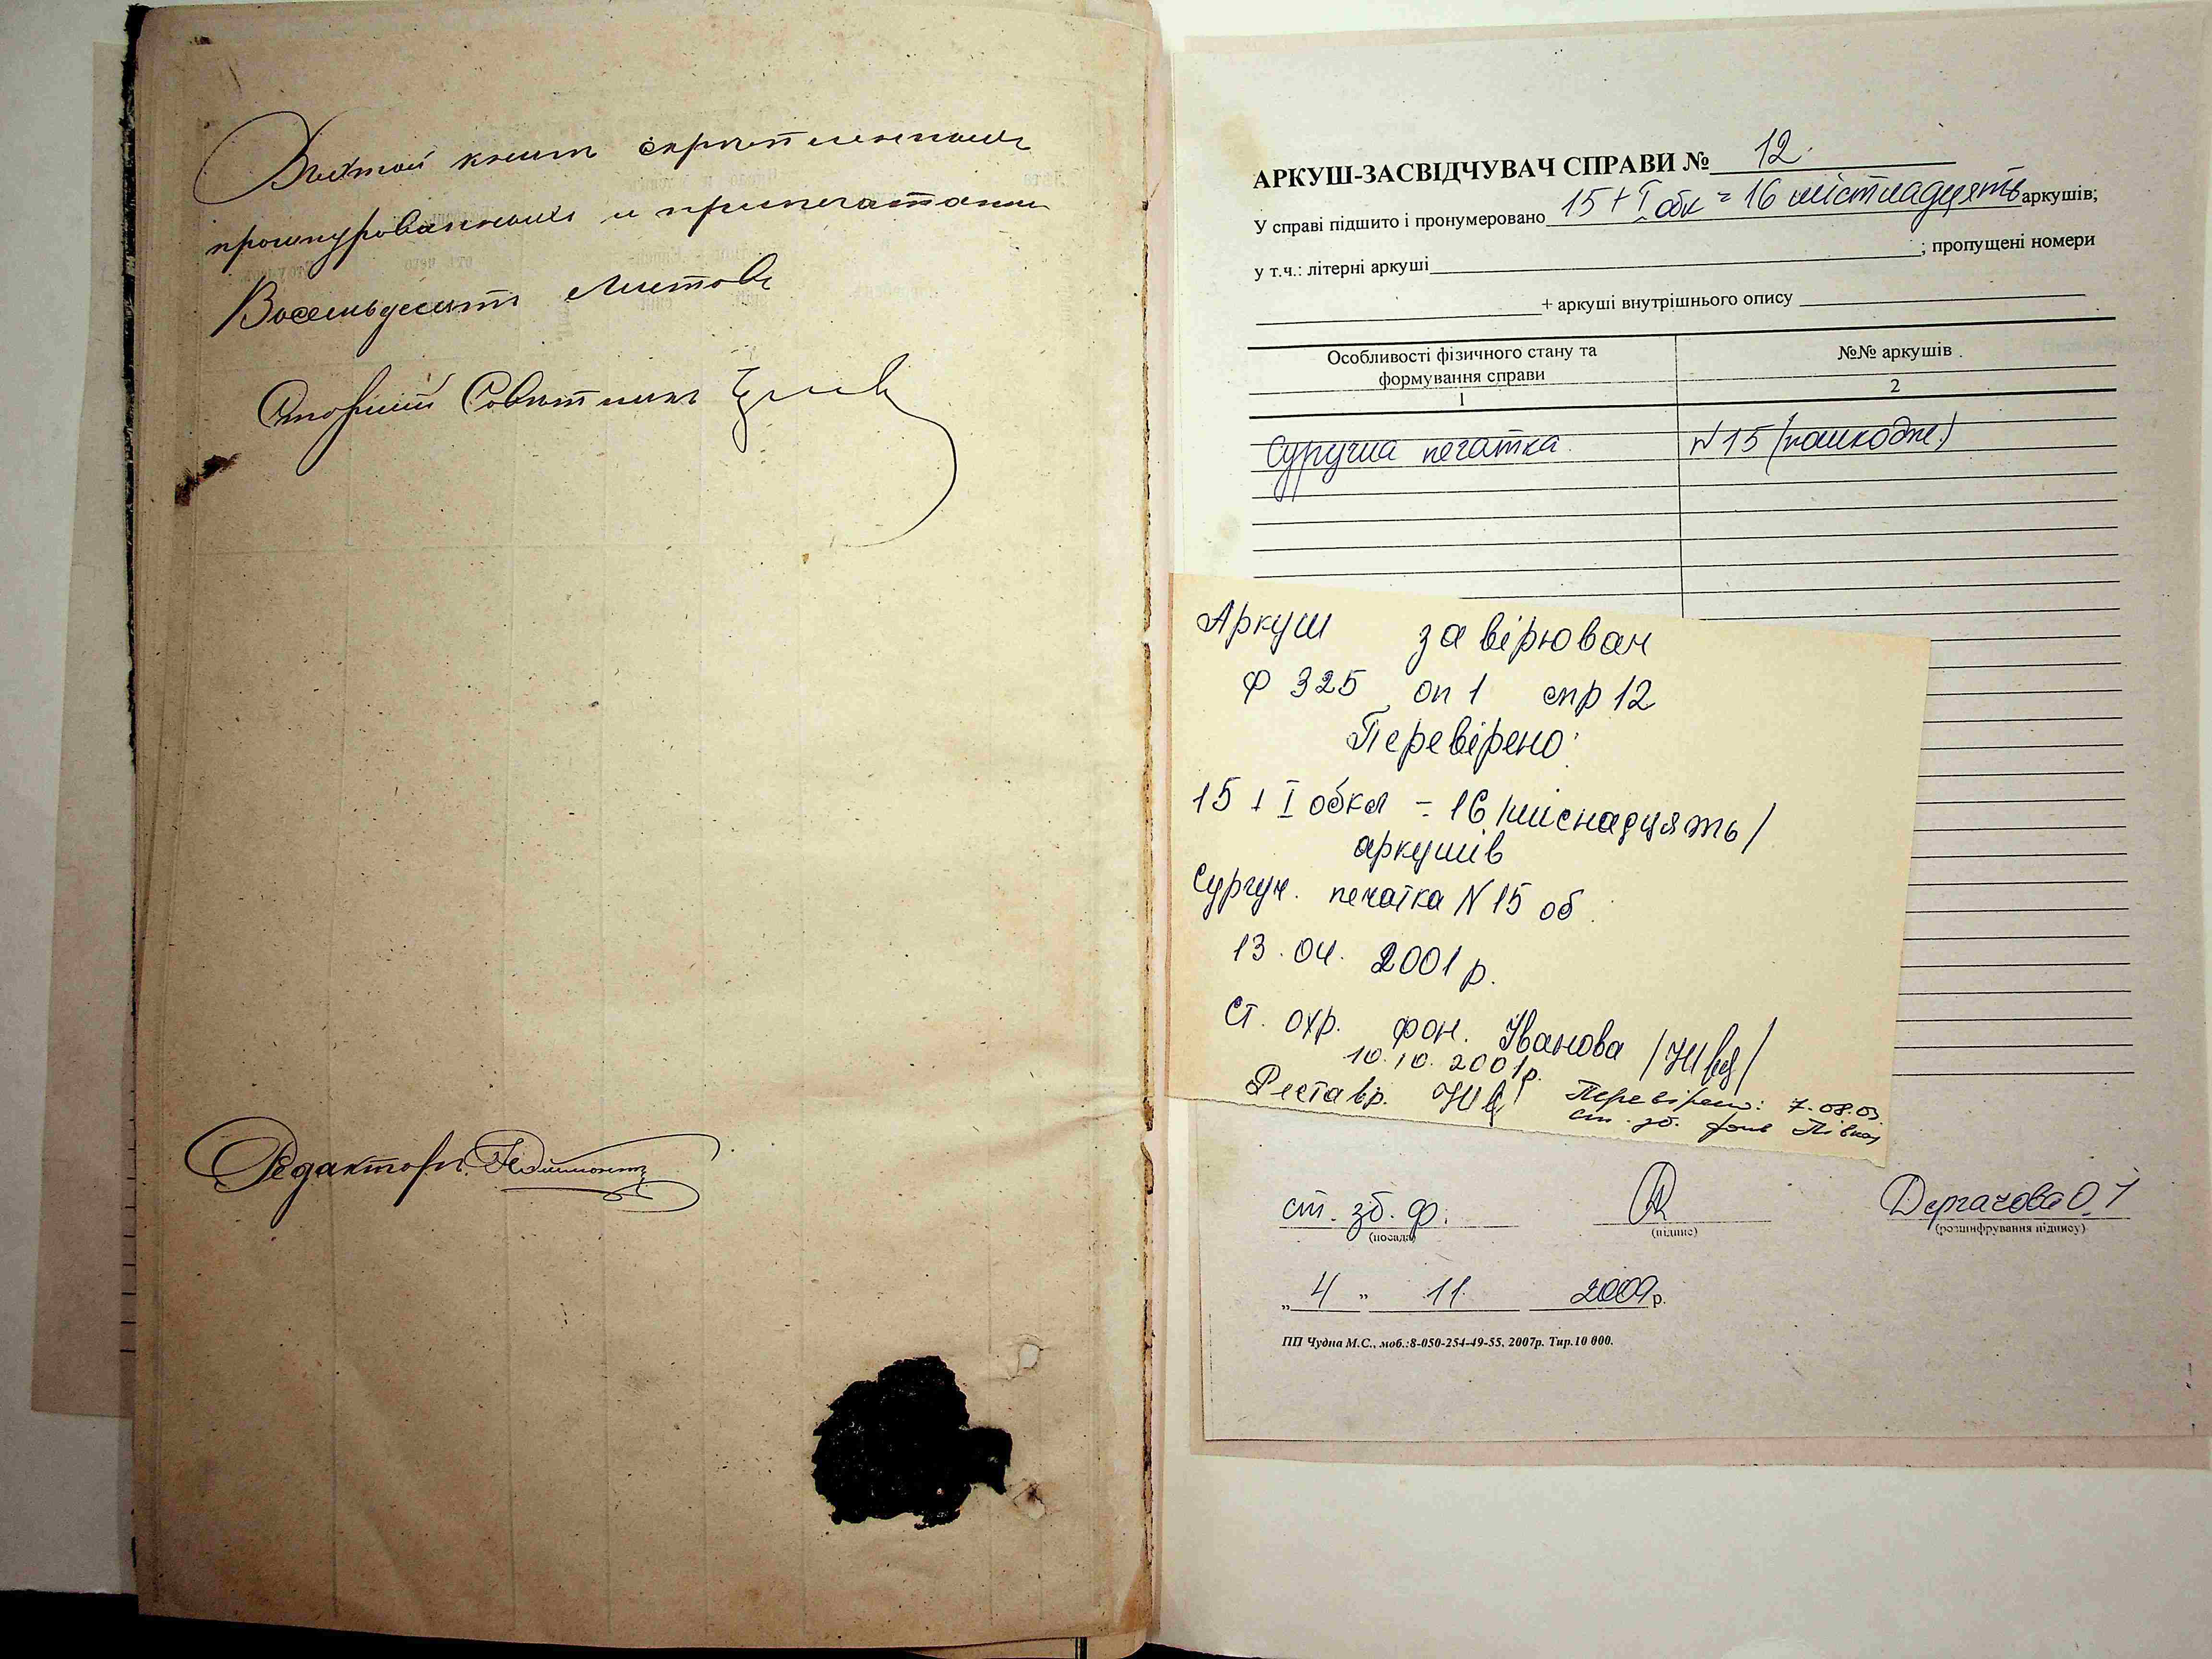 В этой книге скрепленныхъ
прошнурованныхъ и припечатанныхъ
Восемьдесятъ листовъ
Старшій Совѣтникъ
Редакторъ
АРКУШ-ЗАСВІДЧУВАЧ СПРАВИ № 12
У справі підшито і пронумеровано 15 + I обк = 16 шістнадцять аркушів;
у т.ч.: літерні аркуші ; пропущені номери
+ аркуші внутрішнього опису
Особливості фізичного стану та формування справи
№№ аркушів
1
2
Сургучна печатка
№ 15 (пошкодж.)
Аркуш завірювач
Ф 325 оп 1 спр 12
Перевірено:
15 + I обкл = 16 /шіснадцять/
аркушів
Сургуч. печатка N 15 об.
13.04.2001 р.
Ст. охр. фон. Іванова
10.10.2001р.
Реставр.
Перевірено: 7.08.03
ст. зб. фонд.
ст. зб. ф.
(посада)
(підпис)
Дергачова О.І
(розшифрування підпису)
„ 4 ” 11. 2009 р.
ПП Чудна М.С., моб.:8-050-254-49-55, 2007р. Тир.10 000.